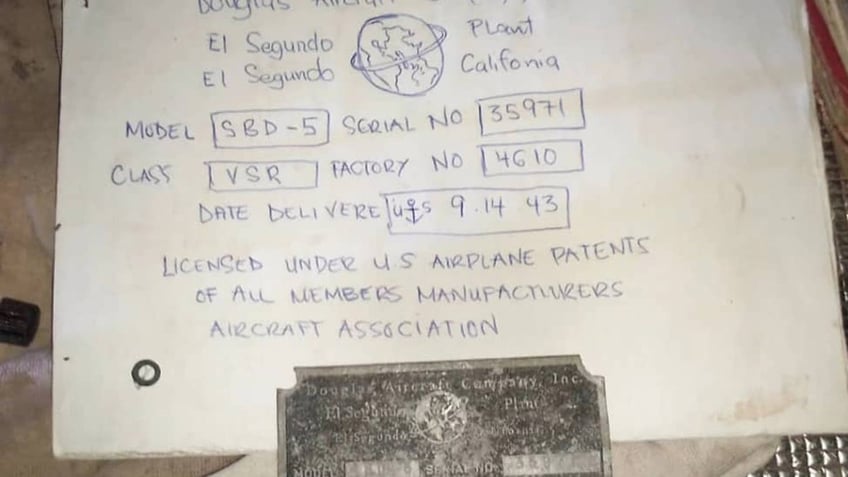 Douglas Aircraft
El Segundo Plant
El Segundo Califonia
MODEL SBD-5 SERIAL NO 35971
CLASS VSR FACTORY NO 4610
DATE DELIVERE U⚓S 9.14 43
LICENSED UNDER U.S AIRPLANE PATENTS
OF ALL MEMBERS MANUFACTURERS
AIRCRAFT ASSOCIATION
Douglas Aircraft Company, Inc.
El Segundo Plant
El Segundo California
MODEL SERIAL NO.